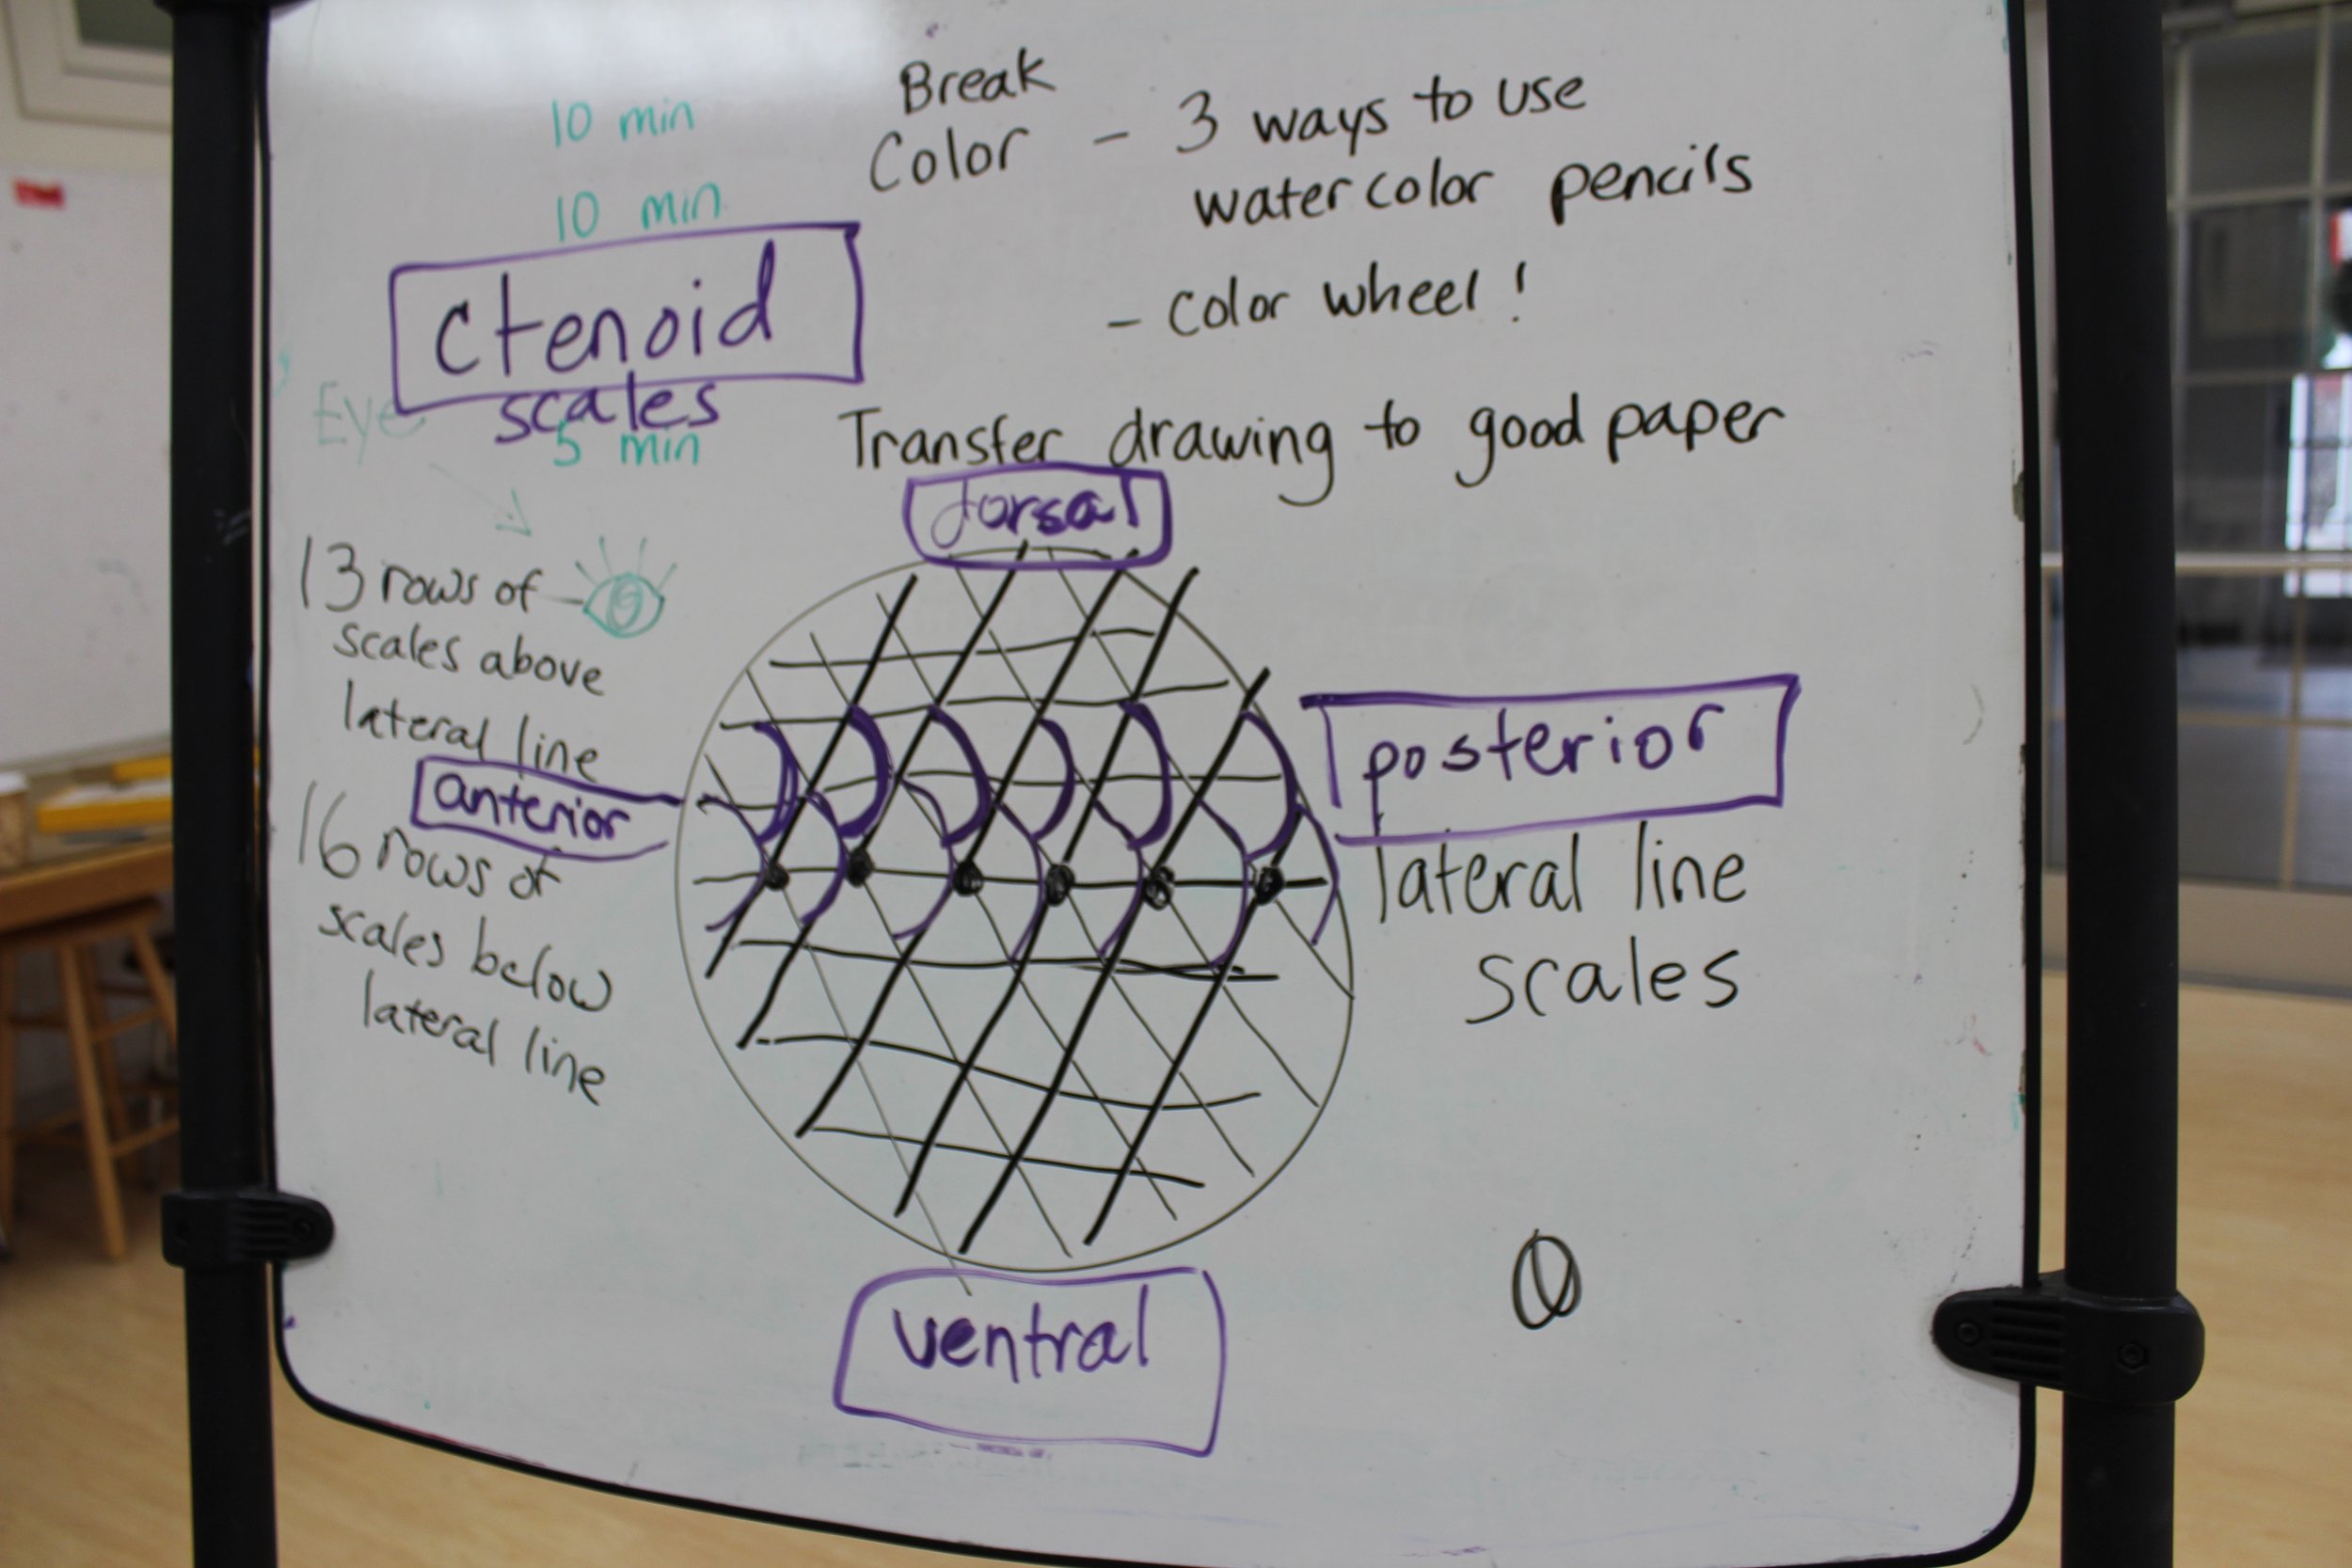 10 min
Break
Color - 3 ways to use
watercolor pencils
10 min
- color wheel!
Ctenoid
scales
Eye
5 min
Transfer drawing to good paper
dorsal
13 rows of
scales above
lateral line
anterior
16 rows of
scales below
lateral line
posterior
lateral line
scales
ventral